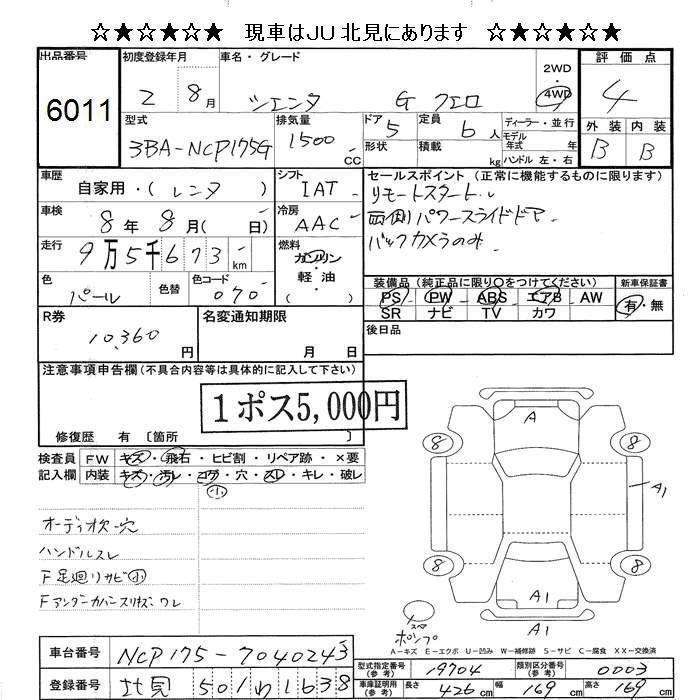 ☆★☆★☆ 現車はJU北見にあります ☆★☆★☆
出品番号 初度登録年月 車名・グレード 2WD・4WD 評価点
6011 2 8月 シエンタ G クエロ 4
型式 排気量 ドア 定員 ディーラー・並行 外装 内装
3BA-NCP175G 1500 CC 5 6人 モデル年式 年 B B
形状 積載 kg ハンドル 左・右
車歴 自家用・(レンタ) シフト IAT セールスポイント (正常に機能するものに限ります)
リモートスタート
車検 8年8月(日) 冷房 AAC 両側パワースライドドア
走行 9万5千673km 燃料 ガソリン・軽油 バックカメラのみ
色 パール 色替 色コード 070
装備品 (純正品に限り○をつけてください) 新車保証書
PS PW ABS エアB AW 有・無
SR ナビ TV カワ
R券 10,360円 名変通知期限 月 日 後日品
注意事項申告欄(不具合内容等は具体的に記入して下さい)
1ポス5,000円
修復歴 有 〔箇所 〕
検査員記入欄 FW キズ・飛石・ヒビ割・リペア跡・×要
内装 キズ・汚レ・コゲ・穴・スレ・キレ・破レ
小
A
8 8
A1
8 8
A1
A1
オーディオ欠・穴
ハンドルスレ
F足廻りサビ小
Fアンダーカバースリキズ・ワレ
スペア
ポンプ
A-キズ E-エクボ U-凹み W-補修跡 S-サビ C-腐食 XX-交換済
車台番号 NCP175-7040243
型式指定番号(参考) 19704 類別区分番号(参考) 0003
登録番号 北見 501 わ 1638
車庫証明用(参考) 長さ 426cm 幅 169cm 高さ 169cm